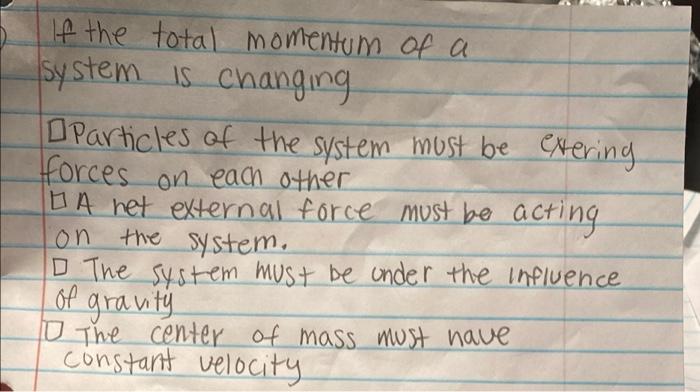 If the total momentum of a
system is changing
□ Particles of the system must be exering
forces on each other
□ A net external force must be acting
on the system.
□ The system must be under the influence
of gravity
□ The center of mass must have
constant velocity